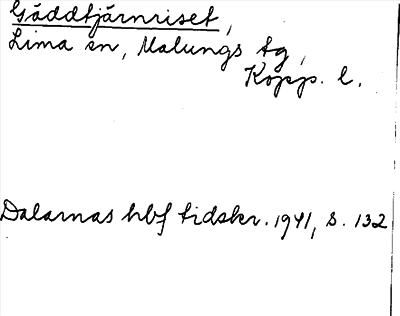 Gäddtjärnriset,
Lima sn, Malungs tg,
Kopp. l.
Dalarnas hbf tidskr. 1941, s. 132